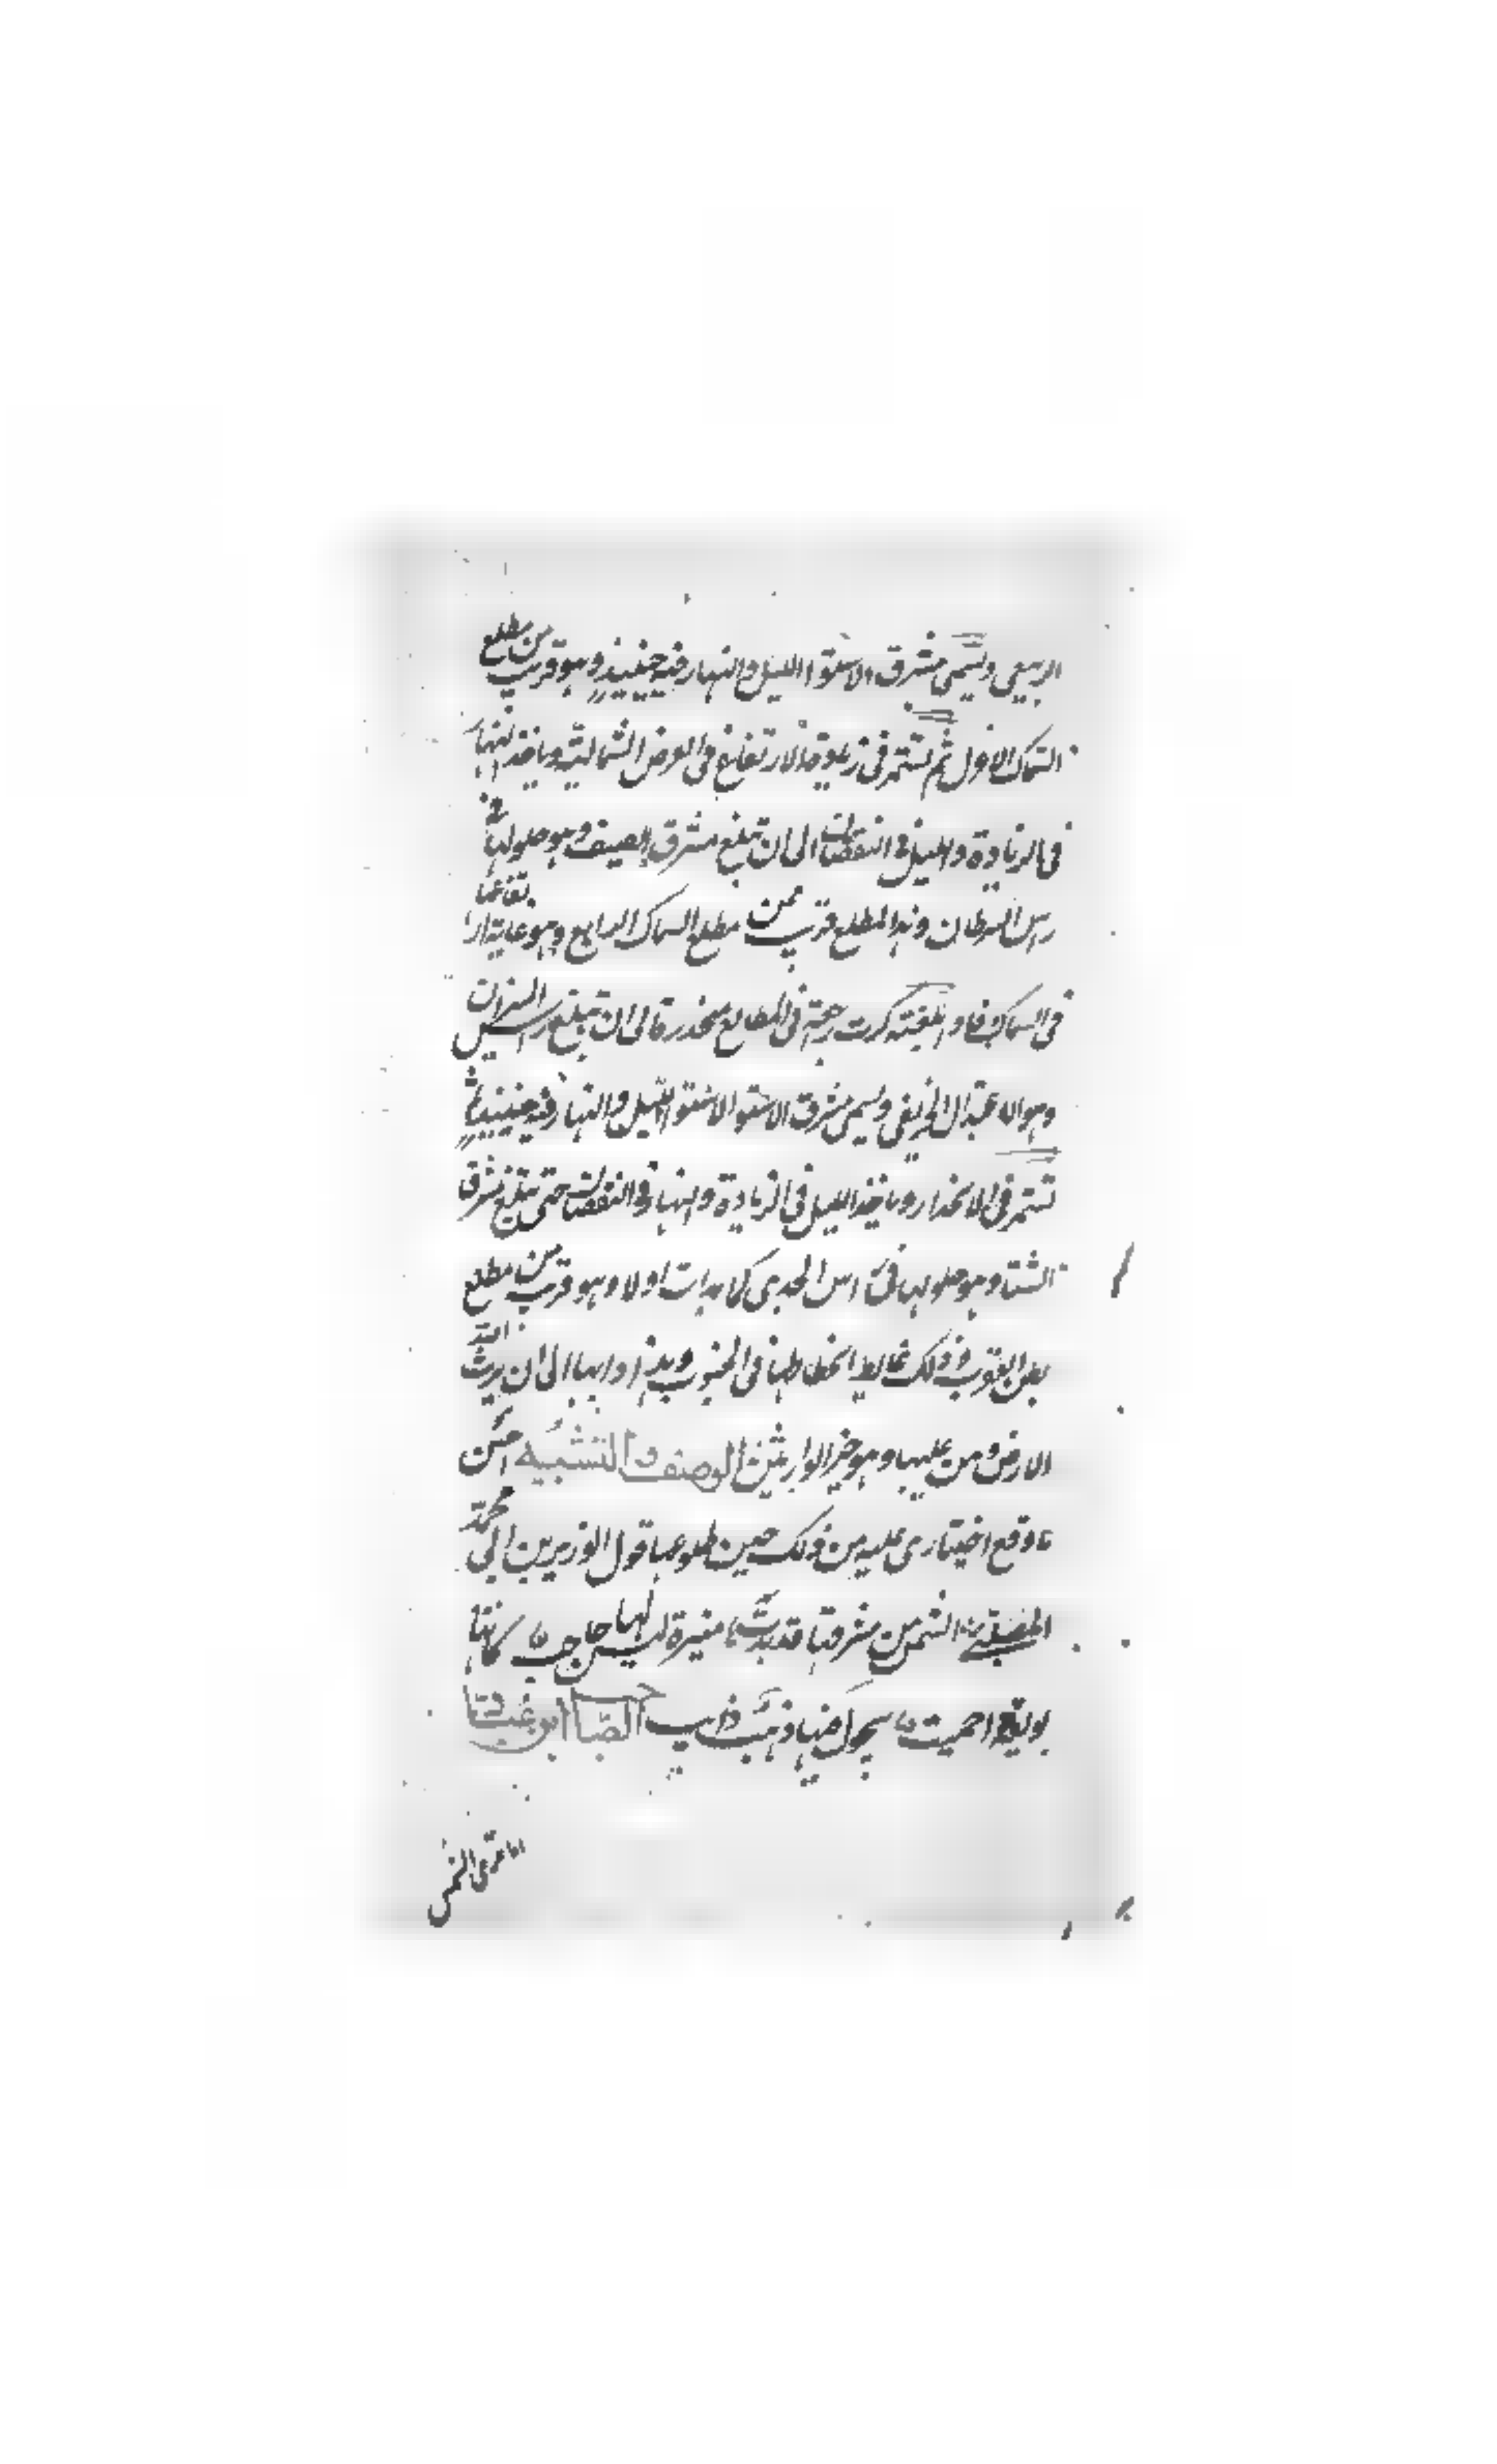 الربيعي ويسمى مشرق الاستوا الليل والنهار فيه حينيذ وهو قريب من مطلع
السماك الاعزل ثم تستمر في زيادة الارتفاع في العرض الشمالية وياخذ النهار
في الزيادة والليل في النقصان الى ان تبلغ مشرق الصيف وهو حلولها في
راس السرطان وهذا المطلع قريب من مطلع السماك الرامح وهو غاية ارتفاعها
في السماء فاذا بلغته كرت راجعة في المطالع منحدرة الى ان تبلغ راس الميزان
وهو الاعتدال الخريفي ويسمى مشرق الاستوا لاستوا الليل والنهار فيه حينيذ ثم
تستمر في الانحدار وياخذ الليل في الزيادة والنهار في النقصان حتى تبلغ مشرق
الشتا وهو حلولها في راس الجدي كما بدات اولا وهو قريب من مطلع
بطن العقرب وذلك غاية انحطاطها في الجنوب وهذا دابها الى ان يرث الله
الارض ومن عليها وهو خير الوارثين الوصف والتشبيه احسن
ما وقع اختياري عليه من ذلك حين طلوعها قول الوزير بن ابي محمد
المهلبي الشمس من مشرقها قد بدت منيرة ليس لها حاجب كانها
بوتقة احميت يجول فيها ذهب ذايب الصاحب ابن عباد
اما ترى الشمس